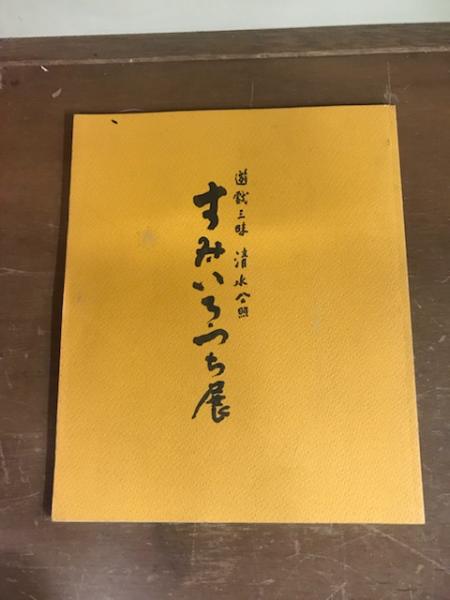 遊戯三昧 清水公照
すみいろつち展